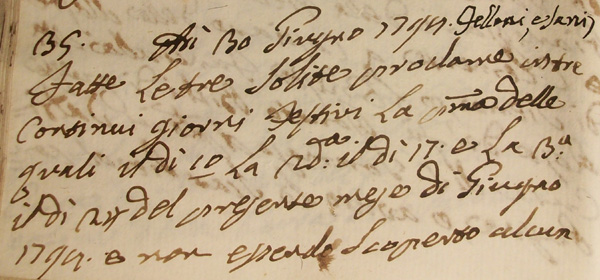 35. Adi 30 Giugno 1794. Felloni, e Sani,
Fatte le tre solite proclame in tre
continui giorni festivi la pma delle
quali il dì 10 la 2da: il dì 17. e la 3.a
il dì 24 del presente mese di Giugno
1794. e non essendo scoperto alcun